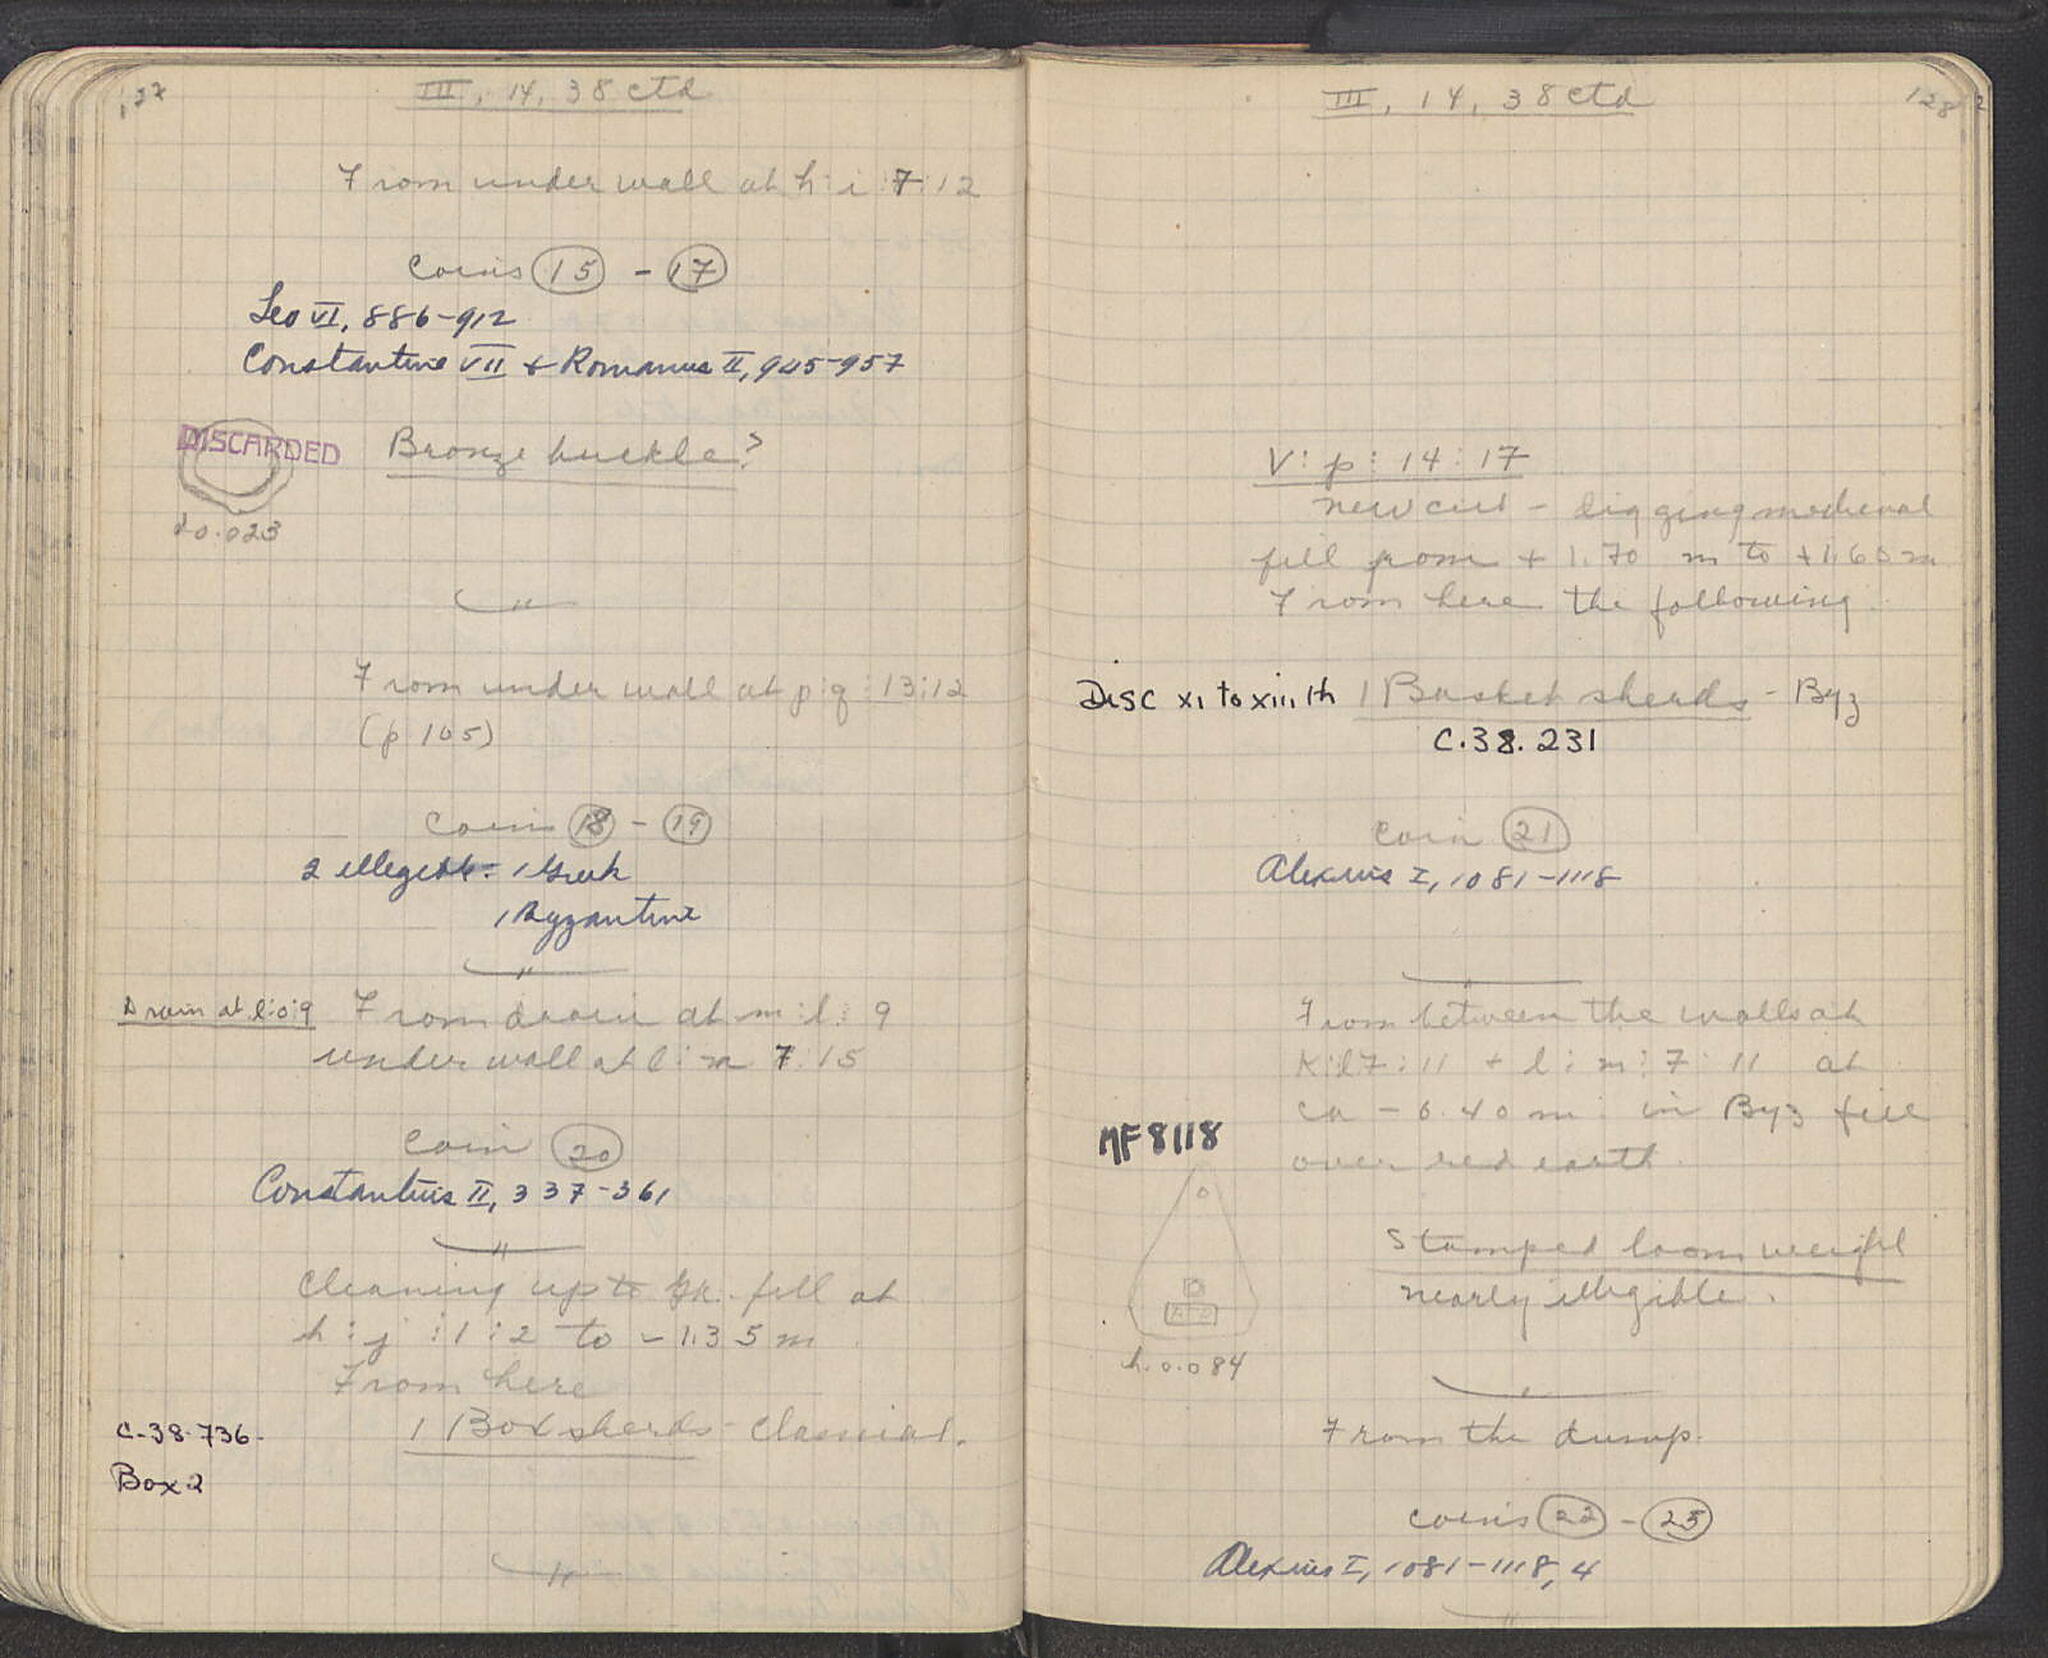 127
III, 14, 38 ctd
From under wall at h:i:7:12
Coins 15 - 17
Leo VI, 886-912
Constantine VII + Romanus II, 945-957
DISCARDED
Bronze buckle?
d 0.023
"
From under wall at p:q:13:12
(p 105)
Coin 18 - 19
2 illegible: 1 Greek
1 Byzantine
"
Drain at l:o:9
From drain at m:l:9
under wall at l:m 7:15
Coin 20
Constantius II, 337-361
"
Cleaning up to Gk. fill at
h:j:1:2 to -1.35 m
From here
1 Box sherds - Classical.
C-38-736-
Box 2
"
III, 14, 38 ctd
128
V:p:14:17
new cut - digging medieval
fill from + 1.70 m to + 1.60 m
From here the following
Disc XI to XIII th 1 Basket sherds - Byz
C.38.231
Coin 21
Alexius I, 1081-1118
"
From between the walls at
K:l 7:11 + l:m:7:11 at
ca - 0.40 m in Byz fill
over red earth.
MF 8118
Stamped loom weight
nearly illegible.
h. 0.084
"
From the dump.
Coins 22 - 25
Alexius I, 1081-1118, 4
"